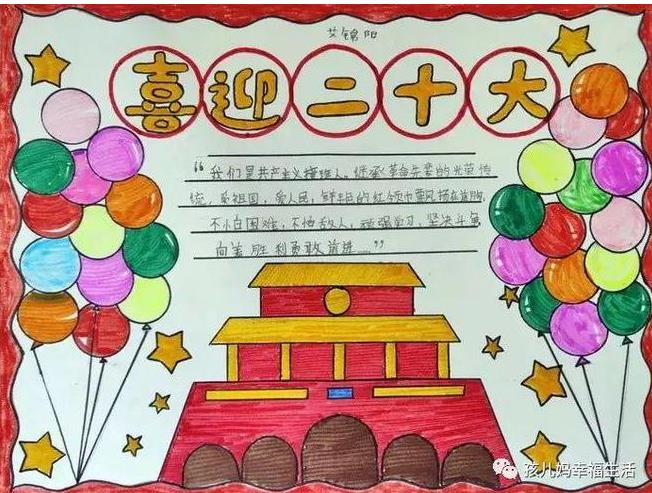 艾锦阳
喜迎二十大
“我们是共产主义接班人。继承革命先辈的光荣传
统，爱祖国，爱人民，鲜艳的红领巾飘扬在前胸，
不怕困难，不怕敌人，顽强学习，坚决斗争
向着胜利勇敢前进……”
孩儿妈幸福生活